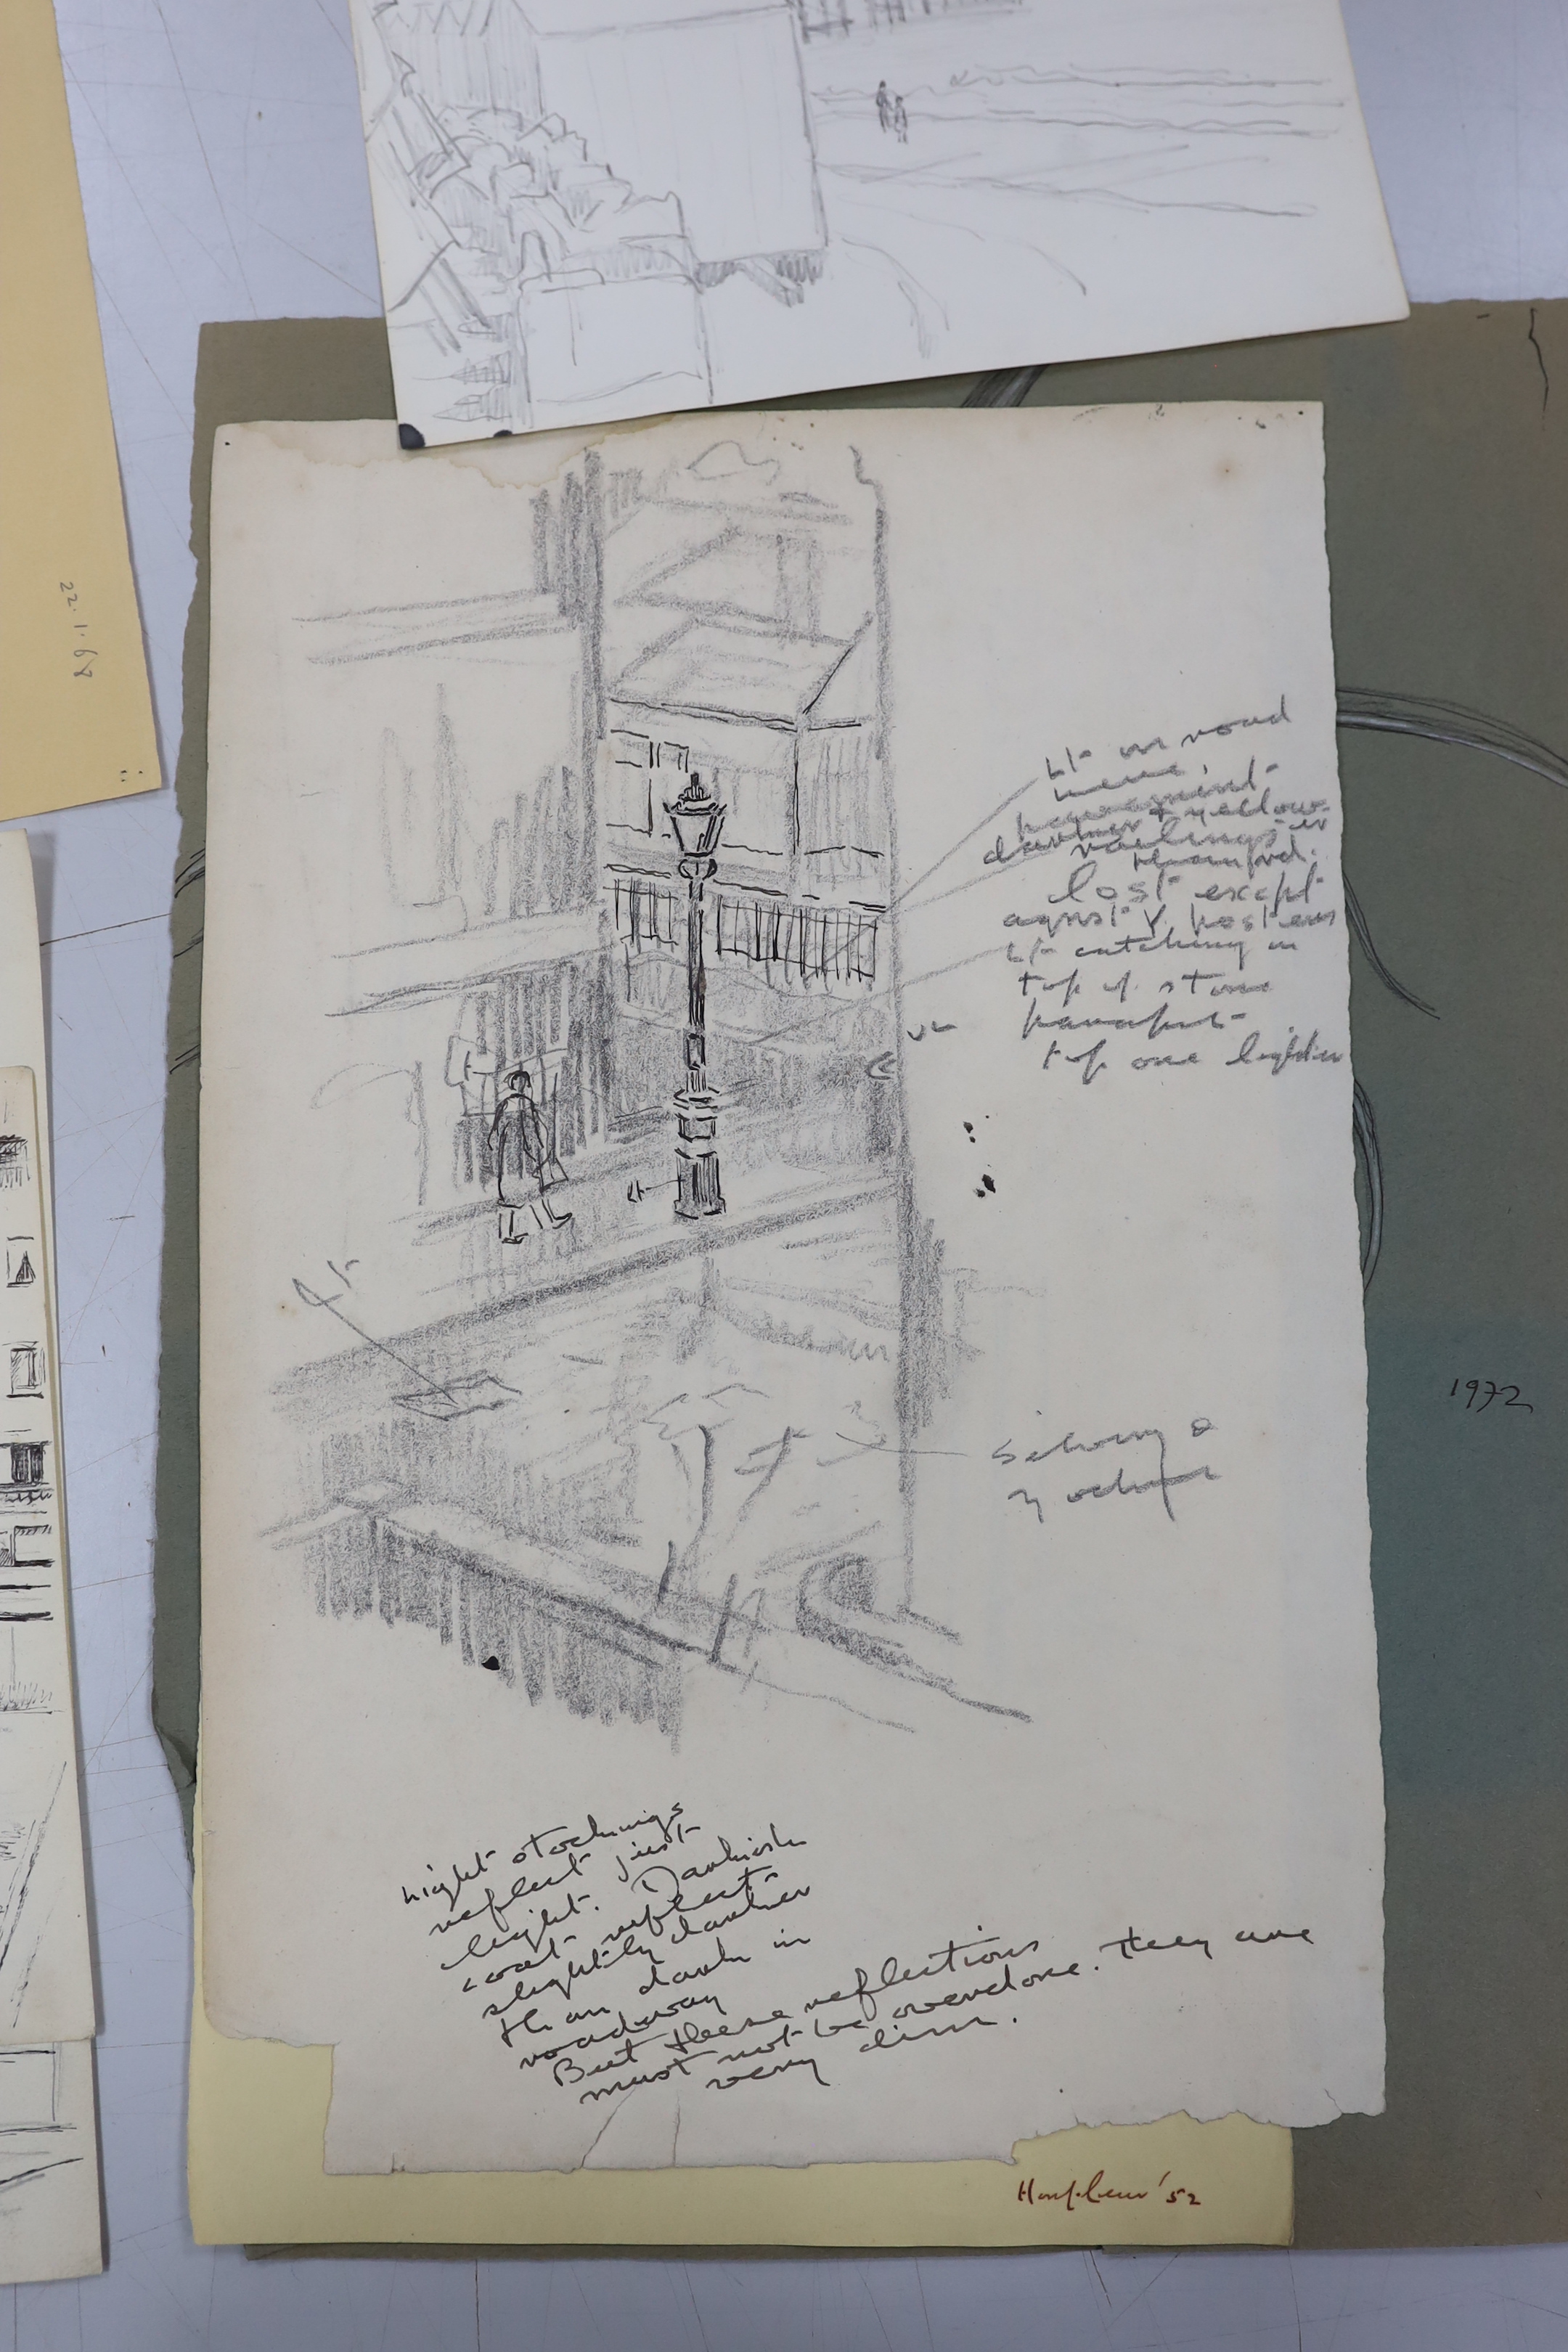 22.1.68
Lt on road
here,
darker & yellow-
railings er
than rd.
lost except
agnst V. posters
Lt catching on
top of stone
parapet
top one lighter
Lt
Lt
Lt
Silvery &
y ochre
1972
night stockings
reflect just
light. Darkish
coat reflect
slightly darker
than dark in
roadway
But these reflections
must not be overdone. They are
very dim.
Honfleur '52